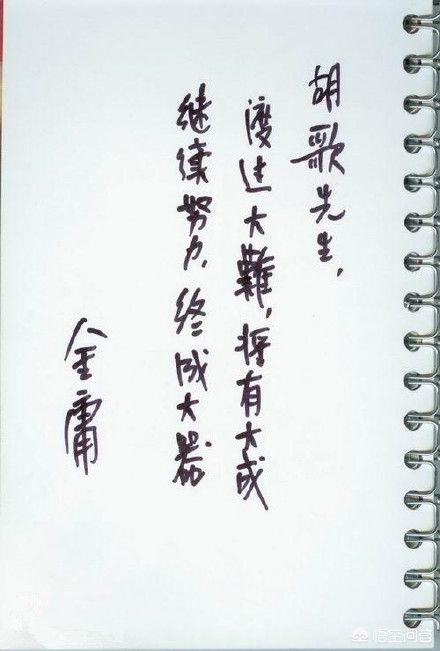 胡歌先生，
渡过大難，将有大成
继续努力，终成大器
金庸
悟空问答